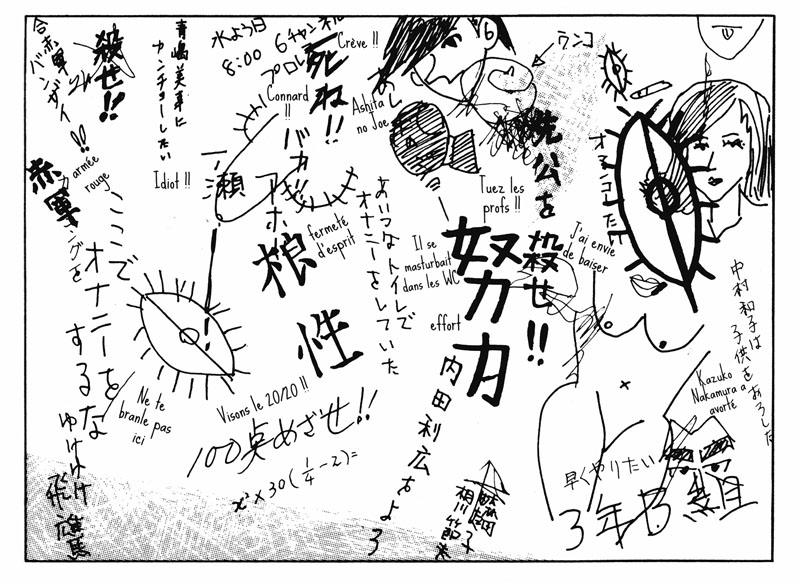 殺せ!!
青嶋美幸に
カンチョーしたい
水よう日
8:00
6チャンネル
プロレス
死ね!!
Crève !!
Connard
!!
バカ
Ashita
no Joe
ウンコ
!!
armée
rouge
赤軍
Idiot !!
一ノ瀬
アホ
fermeté
d'esprit
根性
あいつはトイレで
オナニーをしていた
Il se
masturbait
dans les WC
Tuez les
profs !!
先公を殺せ!!
努力
effort
J'ai envie
de baiser
オマンコしたい
中村和子は
子供をおろした
Kazuko
Nakamura a
avorté
ここで
オナニーを
するな
Ne te
branle pas
ici
ゆけゆけ
飛雄馬
Visons le 20/20 !!
100点めざせ!!
x² × 30 (1/4 − 2) =
内田利広
早くやりたい
3年B組